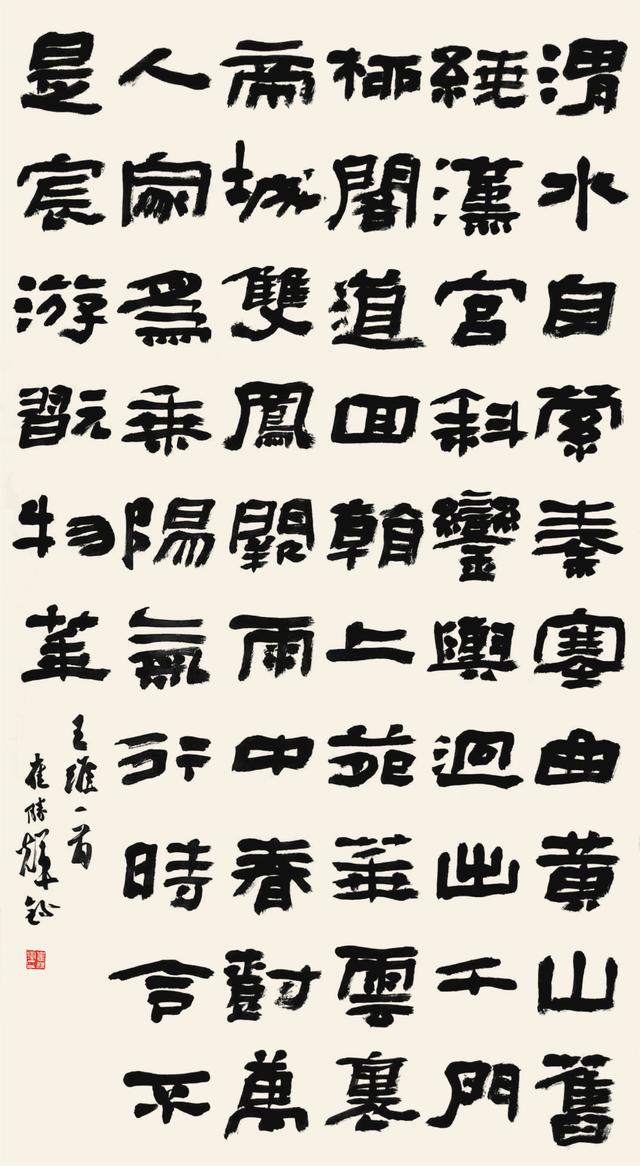 渭水自縈秦塞曲黃山舊
繞漢宮斜鑾輿迥出千門
柳閣道回朝上苑華雲裏
帝城雙鳳闕雨中春對萬
人家爲乘陽氣行時令不
是宸游翫物華
王維一首
崔勝輝